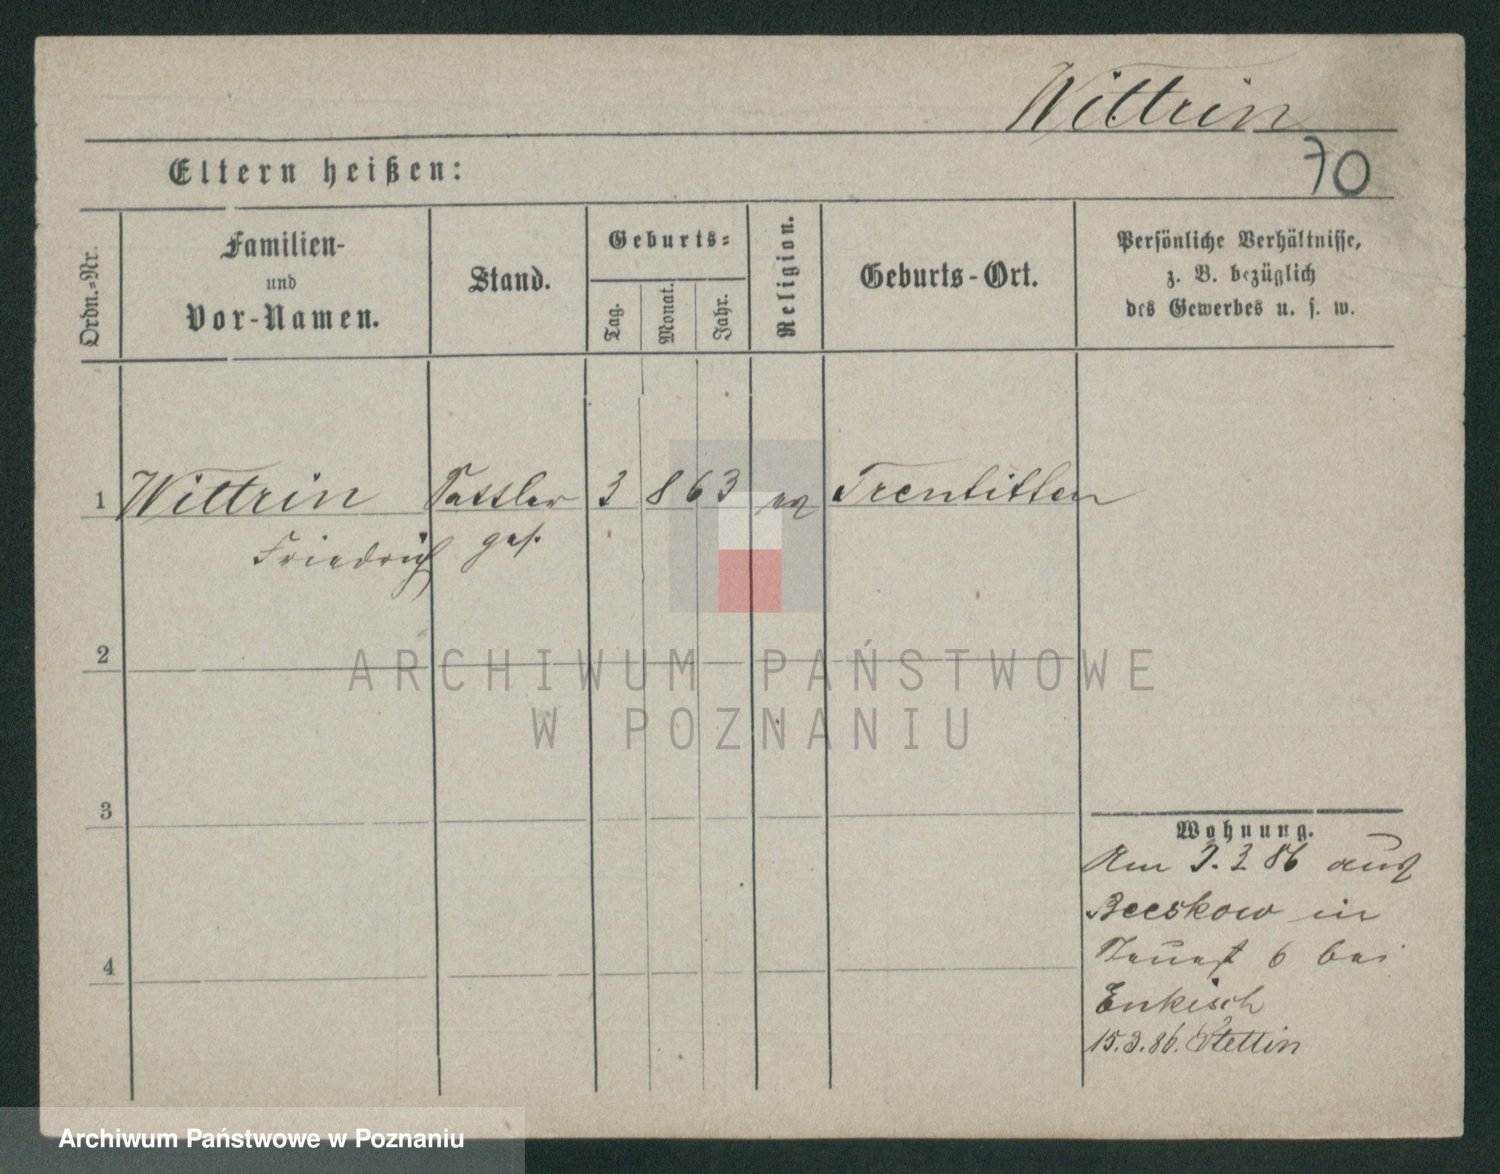 Wittrin
70
Eltern heißen:
Ordn.=Nr.
Familien-
und
Vor-Namen.
Stand.
Geburts=
Tag.
Monat.
Jahr.
Religion.
Geburts-Ort.
Persönliche Verhältnisse,
z. B. bezüglich
des Gewerbes u. s. w.
1 Wittrin Sattler 3 8 63 ev
Friedrich ges.
2
ARCHIWUM PAŃSTWOWE
W POZNANIU
3
Wohnung.
Am 3.3 86 aus
Beeskow in
6 bei
4
Enkisch
15.3.86. Stettin
Archiwum Państwowe w Poznaniu